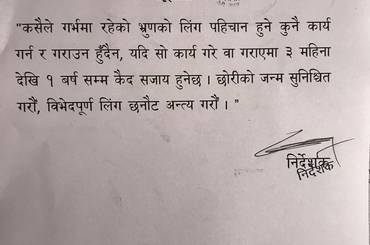 "कसैले गर्भमा रहेको भ्रुणको लिंग पहिचान हुने कुनै कार्य
गर्न र गराउन हुँदैन, यदि सो कार्य गरे वा गराएमा ३ महिना
देखि १ बर्ष सम्म कैद सजाय हुनेछ । छोरीको जन्म सुनिश्चित
गरौं, विभेदपूर्ण लिंग छनौट अन्त्य गरौं । "
निर्देशक
निर्देशक